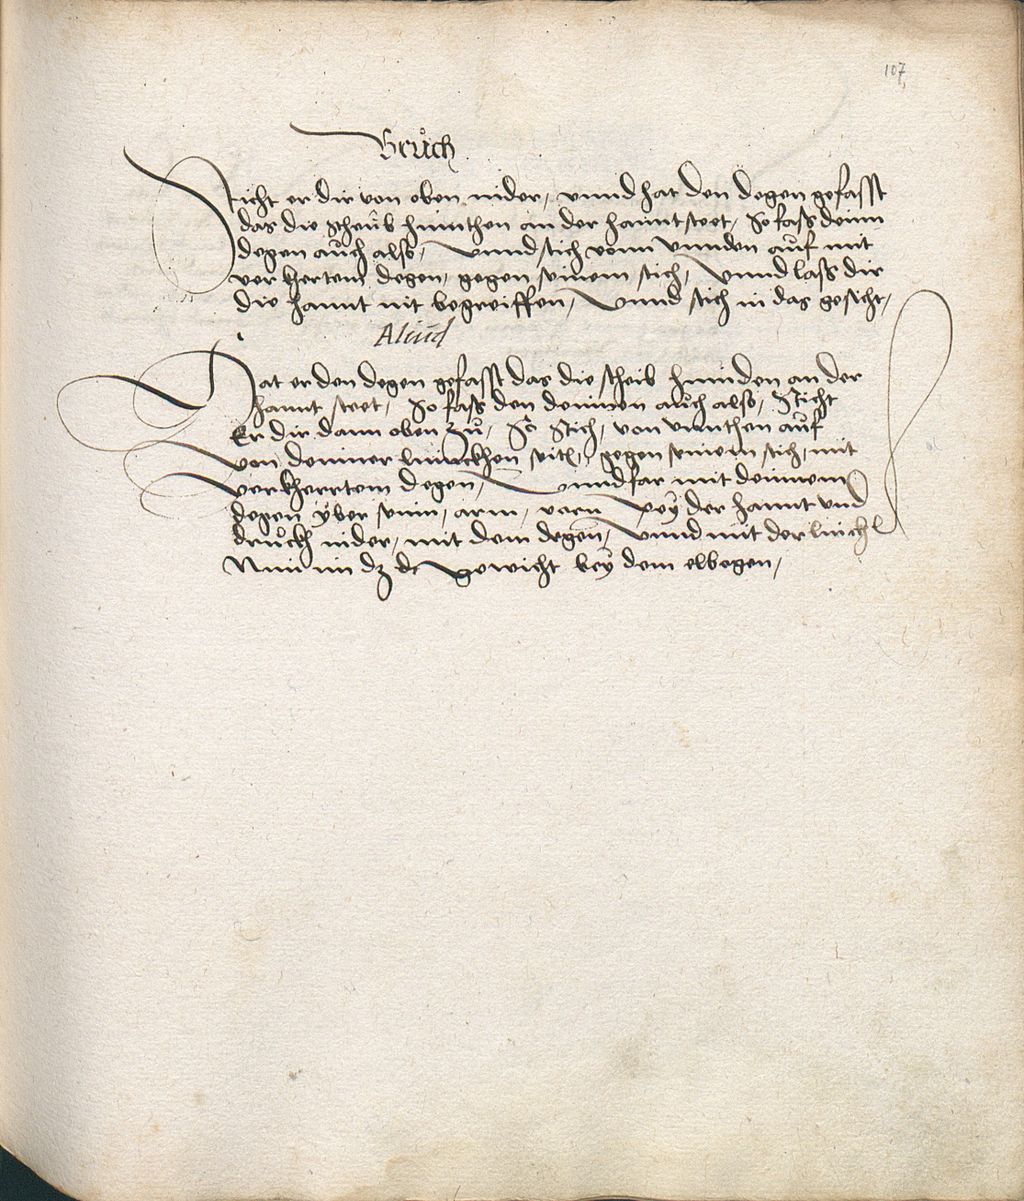 107
Brüch
Sticht er dir von oben nider, vnnd hat den degen gefasst
das die scheüb hünthen an der hannt steet, So fass deinn
degen aüch also, vnnd stich vonn vnnden aüf mit
verkhertem degen, gegen seinem stich, vnnd lass dir
die hannt nit begreiffen, vnnd stich in das gesicht,
Aliud
Hat er den degen gefasst das die scheib hinnden an der
hannt steet, So fass den deinnen aüch also, Sticht
Er dir dann oben Zů, So Stich, von vnnthen aüf
von deinner linnckhen seitn, gegen seinem stich, mit
verkherrtem degen, vnnd far mit deinnem
degen ÿber seinn, arm, vorn peÿ der hannt vnd
drückh nider, mit dem degen, vnnd mit der linckh
Nim im dz gewicht beÿ dem elbogen,